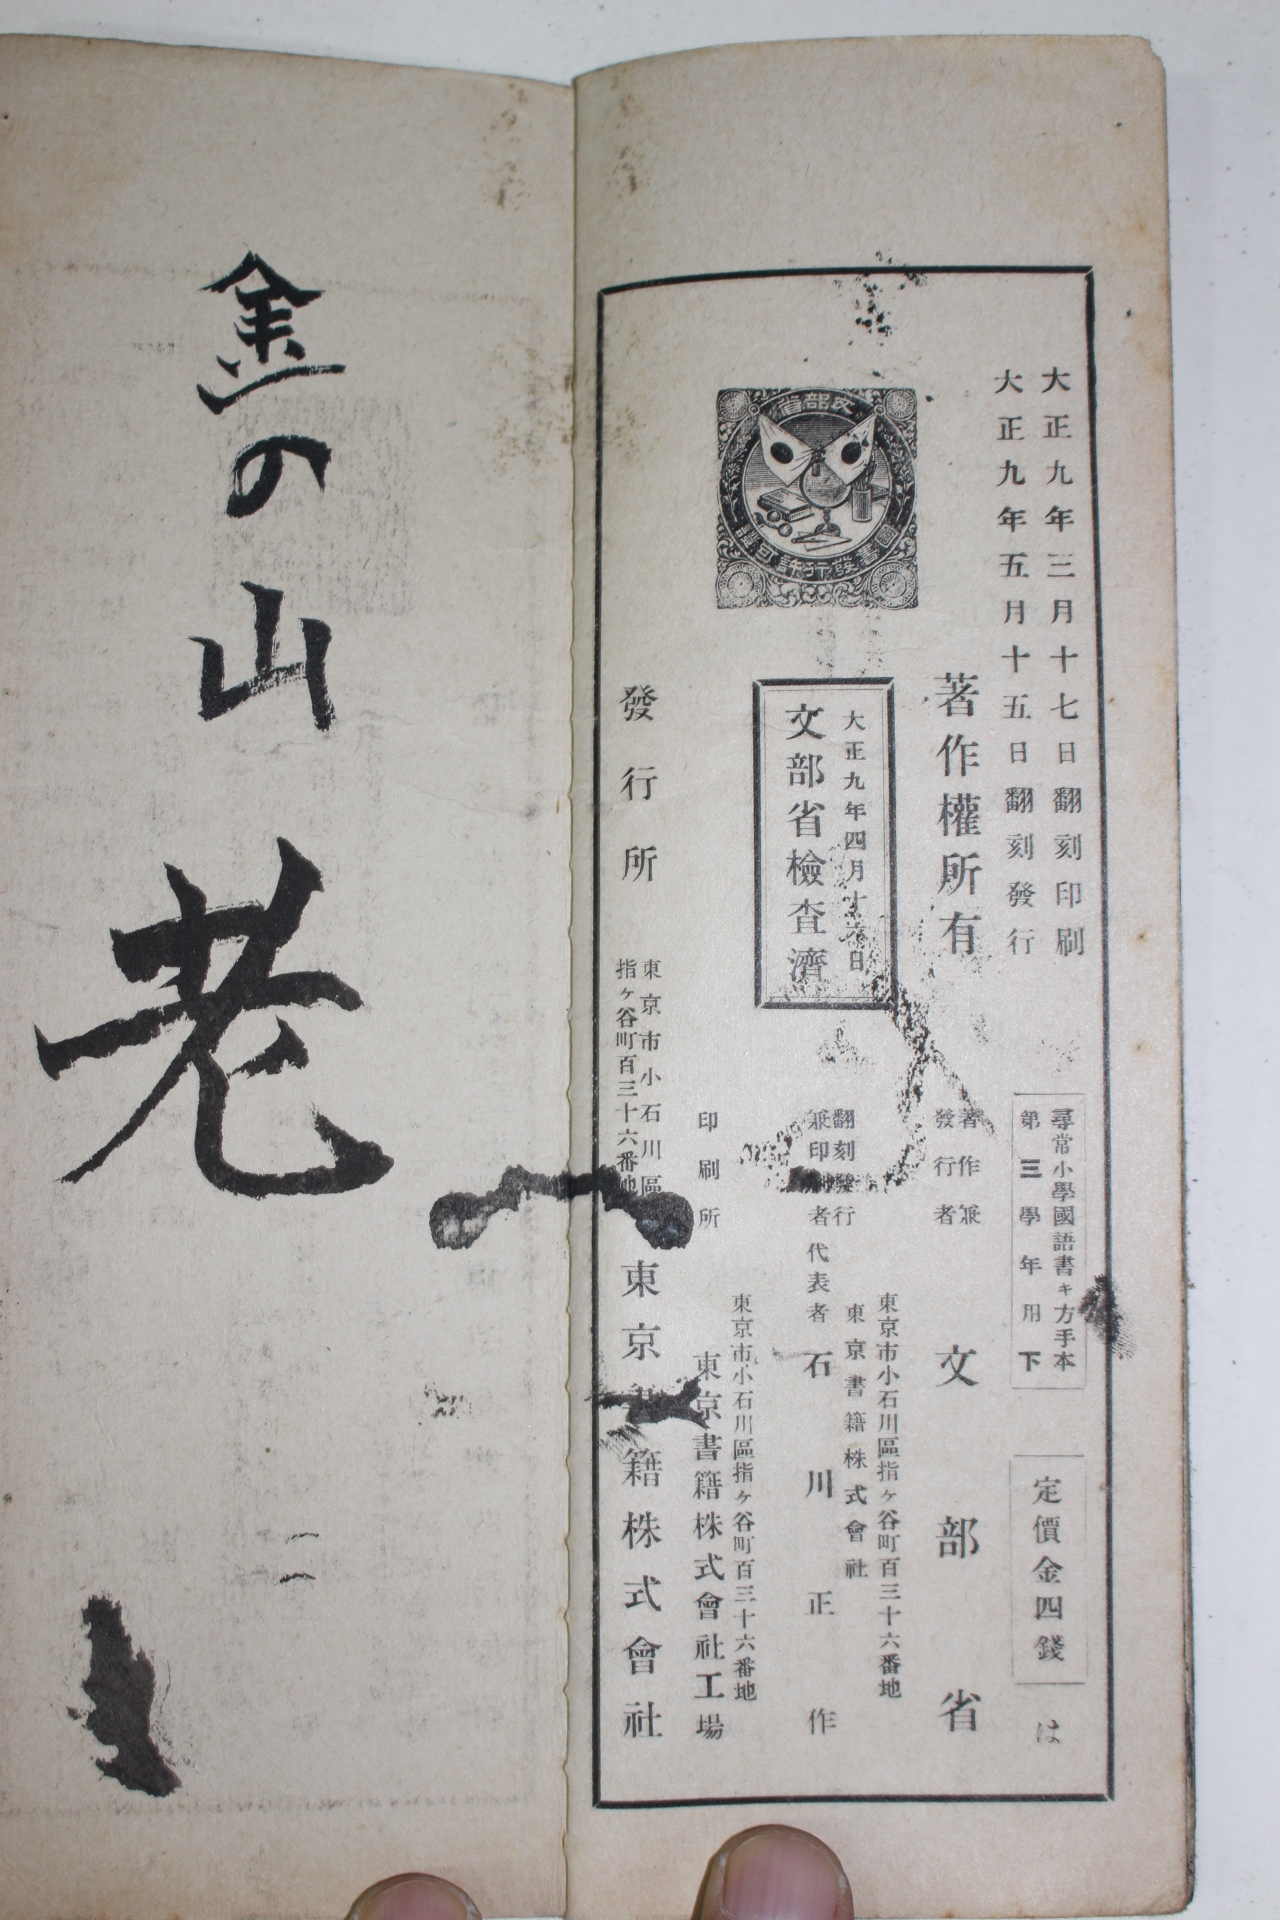 大正九年三月十七日翻刻印刷
大正九年五月十五日翻刻發行
尋常小學國語書キ方手本
第三學年用下
定價金四錢
は
著作權所有
著作兼
發行者
文部省
文部省
圖書發行許可證
大正九年四月十 日
文部省檢査濟
翻刻發行
兼印 者
代表者
東京市小石川區指ヶ谷町百三十六番地
東京書籍株式會社
石川正作
印刷所
東京市小石川區指ヶ谷町百三十六番地
東京書籍株式會社工場
發行所
東京市小石川區
指ヶ谷町百三十六番地
東京書籍株式會社
金の山
老